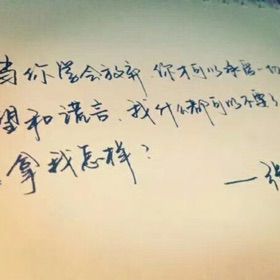 当你学会放弃.你才可以承受一切
望和谎言.我什么都可以不要了
拿我怎样?
—张